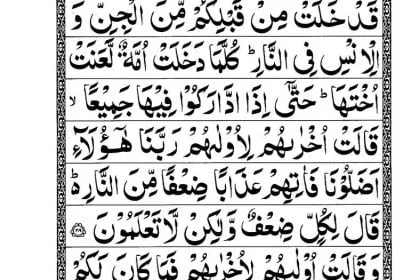 قَدْ خَلَتْ مِنْ قَبْلِكُمْ مِّنَ الْجِنِّ وَ
الْاِنْسِ فِی النَّارِ ؕ كُلَّمَا دَخَلَتْ اُمَّةٌ لَّعَنَتْ
اُخْتَهَا ؕ حَتّٰۤی اِذَا ادَّارَكُوْا فِیْهَا جَمِیْعًا ۙ
قَالَتْ اُخْرٰىهُمْ لِاُوْلٰىهُمْ رَبَّنَا هٰۤؤُلَآءِ
اَضَلُّوْنَا فَاٰتِهِمْ عَذَابًا ضِعْفًا مِّنَ النَّارِ ؕ۬
قَالَ لِكُلٍّ ضِعْفٌ وَّ لٰكِنْ لَّا تَعْلَمُوْنَ
وَ قَالَتْ اُوْلٰىهُمْ لِاُخْرٰىهُمْ فَمَا كَانَ لَكُمْ